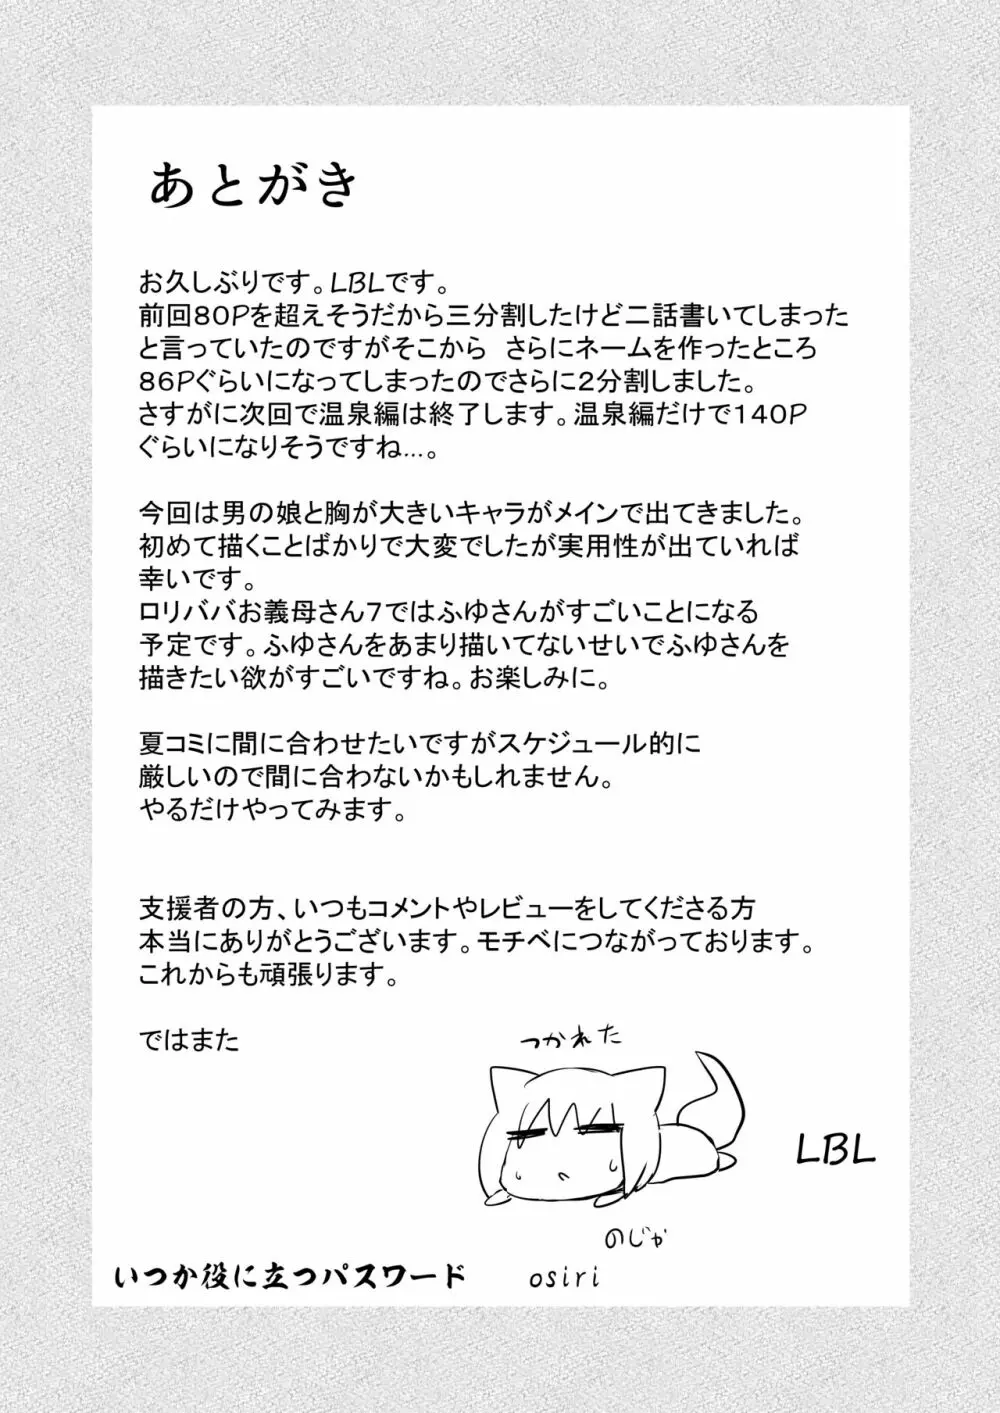 あとがき
お久しぶりです。LBLです。
前回80Pを超えそうだから三分割したけど二話書いてしまった
と言っていたのですがそこから　さらにネームを作ったところ
86Pぐらいになってしまったのでさらに2分割しました。
さすがに次回で温泉編は終了します。温泉編だけで140P
ぐらいになりそうですね…。
今回は男の娘と胸が大きいキャラがメインで出てきました。
初めて描くことばかりで大変でしたが実用性が出ていれば
幸いです。
ロリババお義母さん7ではふゆさんがすごいことになる
予定です。ふゆさんをあまり描いてないせいでふゆさんを
描きたい欲がすごいですね。お楽しみに。
夏コミに間に合わせたいですがスケジュール的に
厳しいので間に合わないかもしれません。
やるだけやってみます。
支援者の方、いつもコメントやレビューをしてくださる方
本当にありがとうございます。モチベにつながっております。
これからも頑張ります。
ではまた
つかれた
LBL
のじゃ
いつか役に立つパスワード　osiri